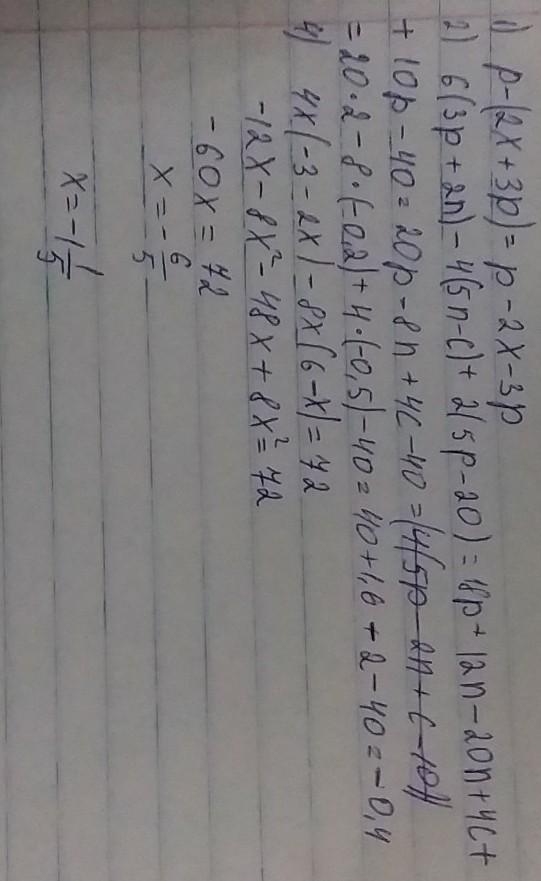 1) p-(2x+3p)=p-2x-3p
2) 6(3p+2n)-4(5n-c)+2(5p-20)=18p+12n-20n+4c+
+10p-40=20p-8n+4c-40=(4(5p-2n+c-10))
=20·2-8·(-0,2)+4·(-0,5)-40=40+1,6+2-40=-0,4
4) 4x(-3-2x)-8x(6-x)=72
-12x-8x²-48x+8x²=72
-60x=72
x=-6/5
x=-1 1/5